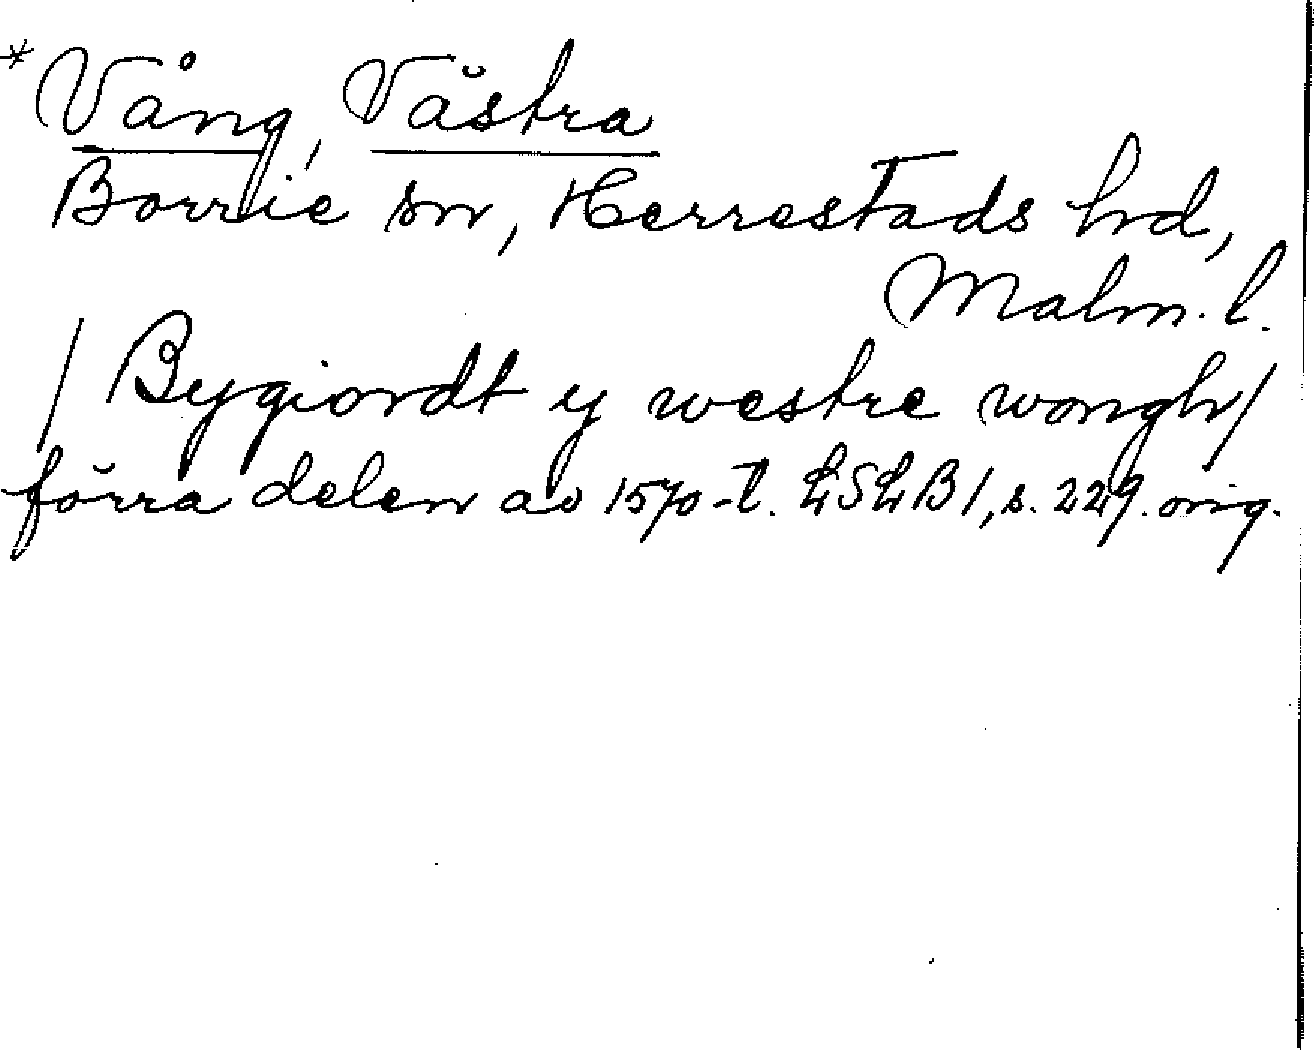 *Vång, Västra
Borrie sn, Herrestads hd,
Malm. l.
/ Bygiordt y westre wongh/
förra delen av 1570-t. LSLB 1, s. 229. orig.